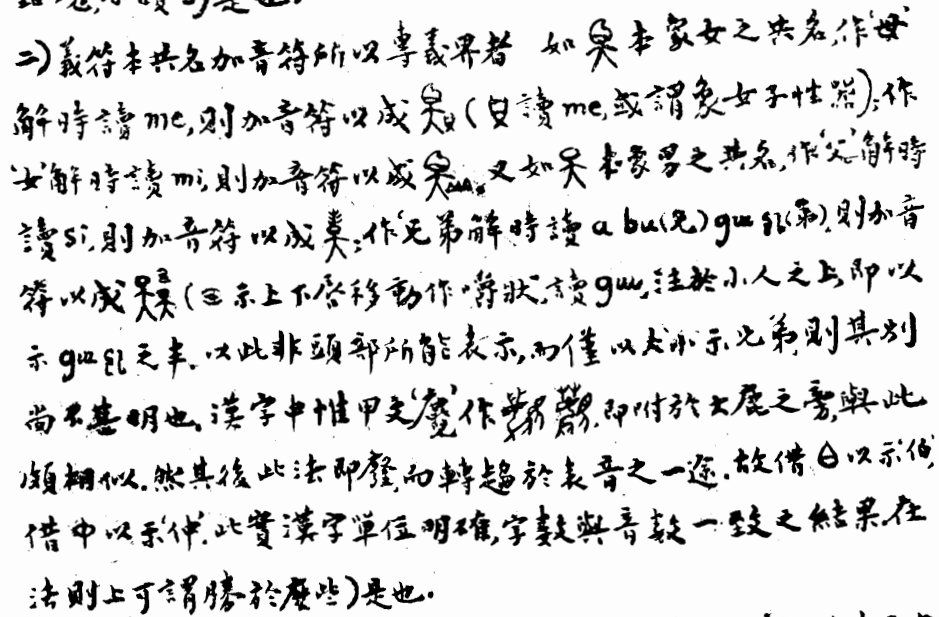 二)義符本共名加音符所以專義界者 如 本象女之共名,作'母'
解時讀me,則加音符以成 ( 讀me,或謂象女子性器);作
'女'解時讀mi,則加音符以成 。又如 本象男之共名,作'父'解時
讀si,則加音符以成 ;作兄弟解時讀a bu(兄)gɯ zɿ(弟),則加音
符以成 ( 示上下唇移動作嚼狀,讀gɯ,注於小人之上,即以
示gɯ zɿ之半.以此非頭部所能表示,而僅以大小示兄弟,則其別
尚不甚明也。漢字中惟甲文'麑'作 ,即附於大鹿之旁,與此
頗相似.然其後此法即廢,而轉趨於表音之一途.故借 以示伯,
借中以示'仲'.此實漢字單位明確,字數與音數一致之結果.在
法則上可謂勝於麽些)是也.